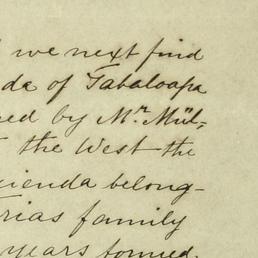 we next find
da of Tabaloapa
ed by Mr. Mül-
the West the
cienda belong-
rias family
years formed